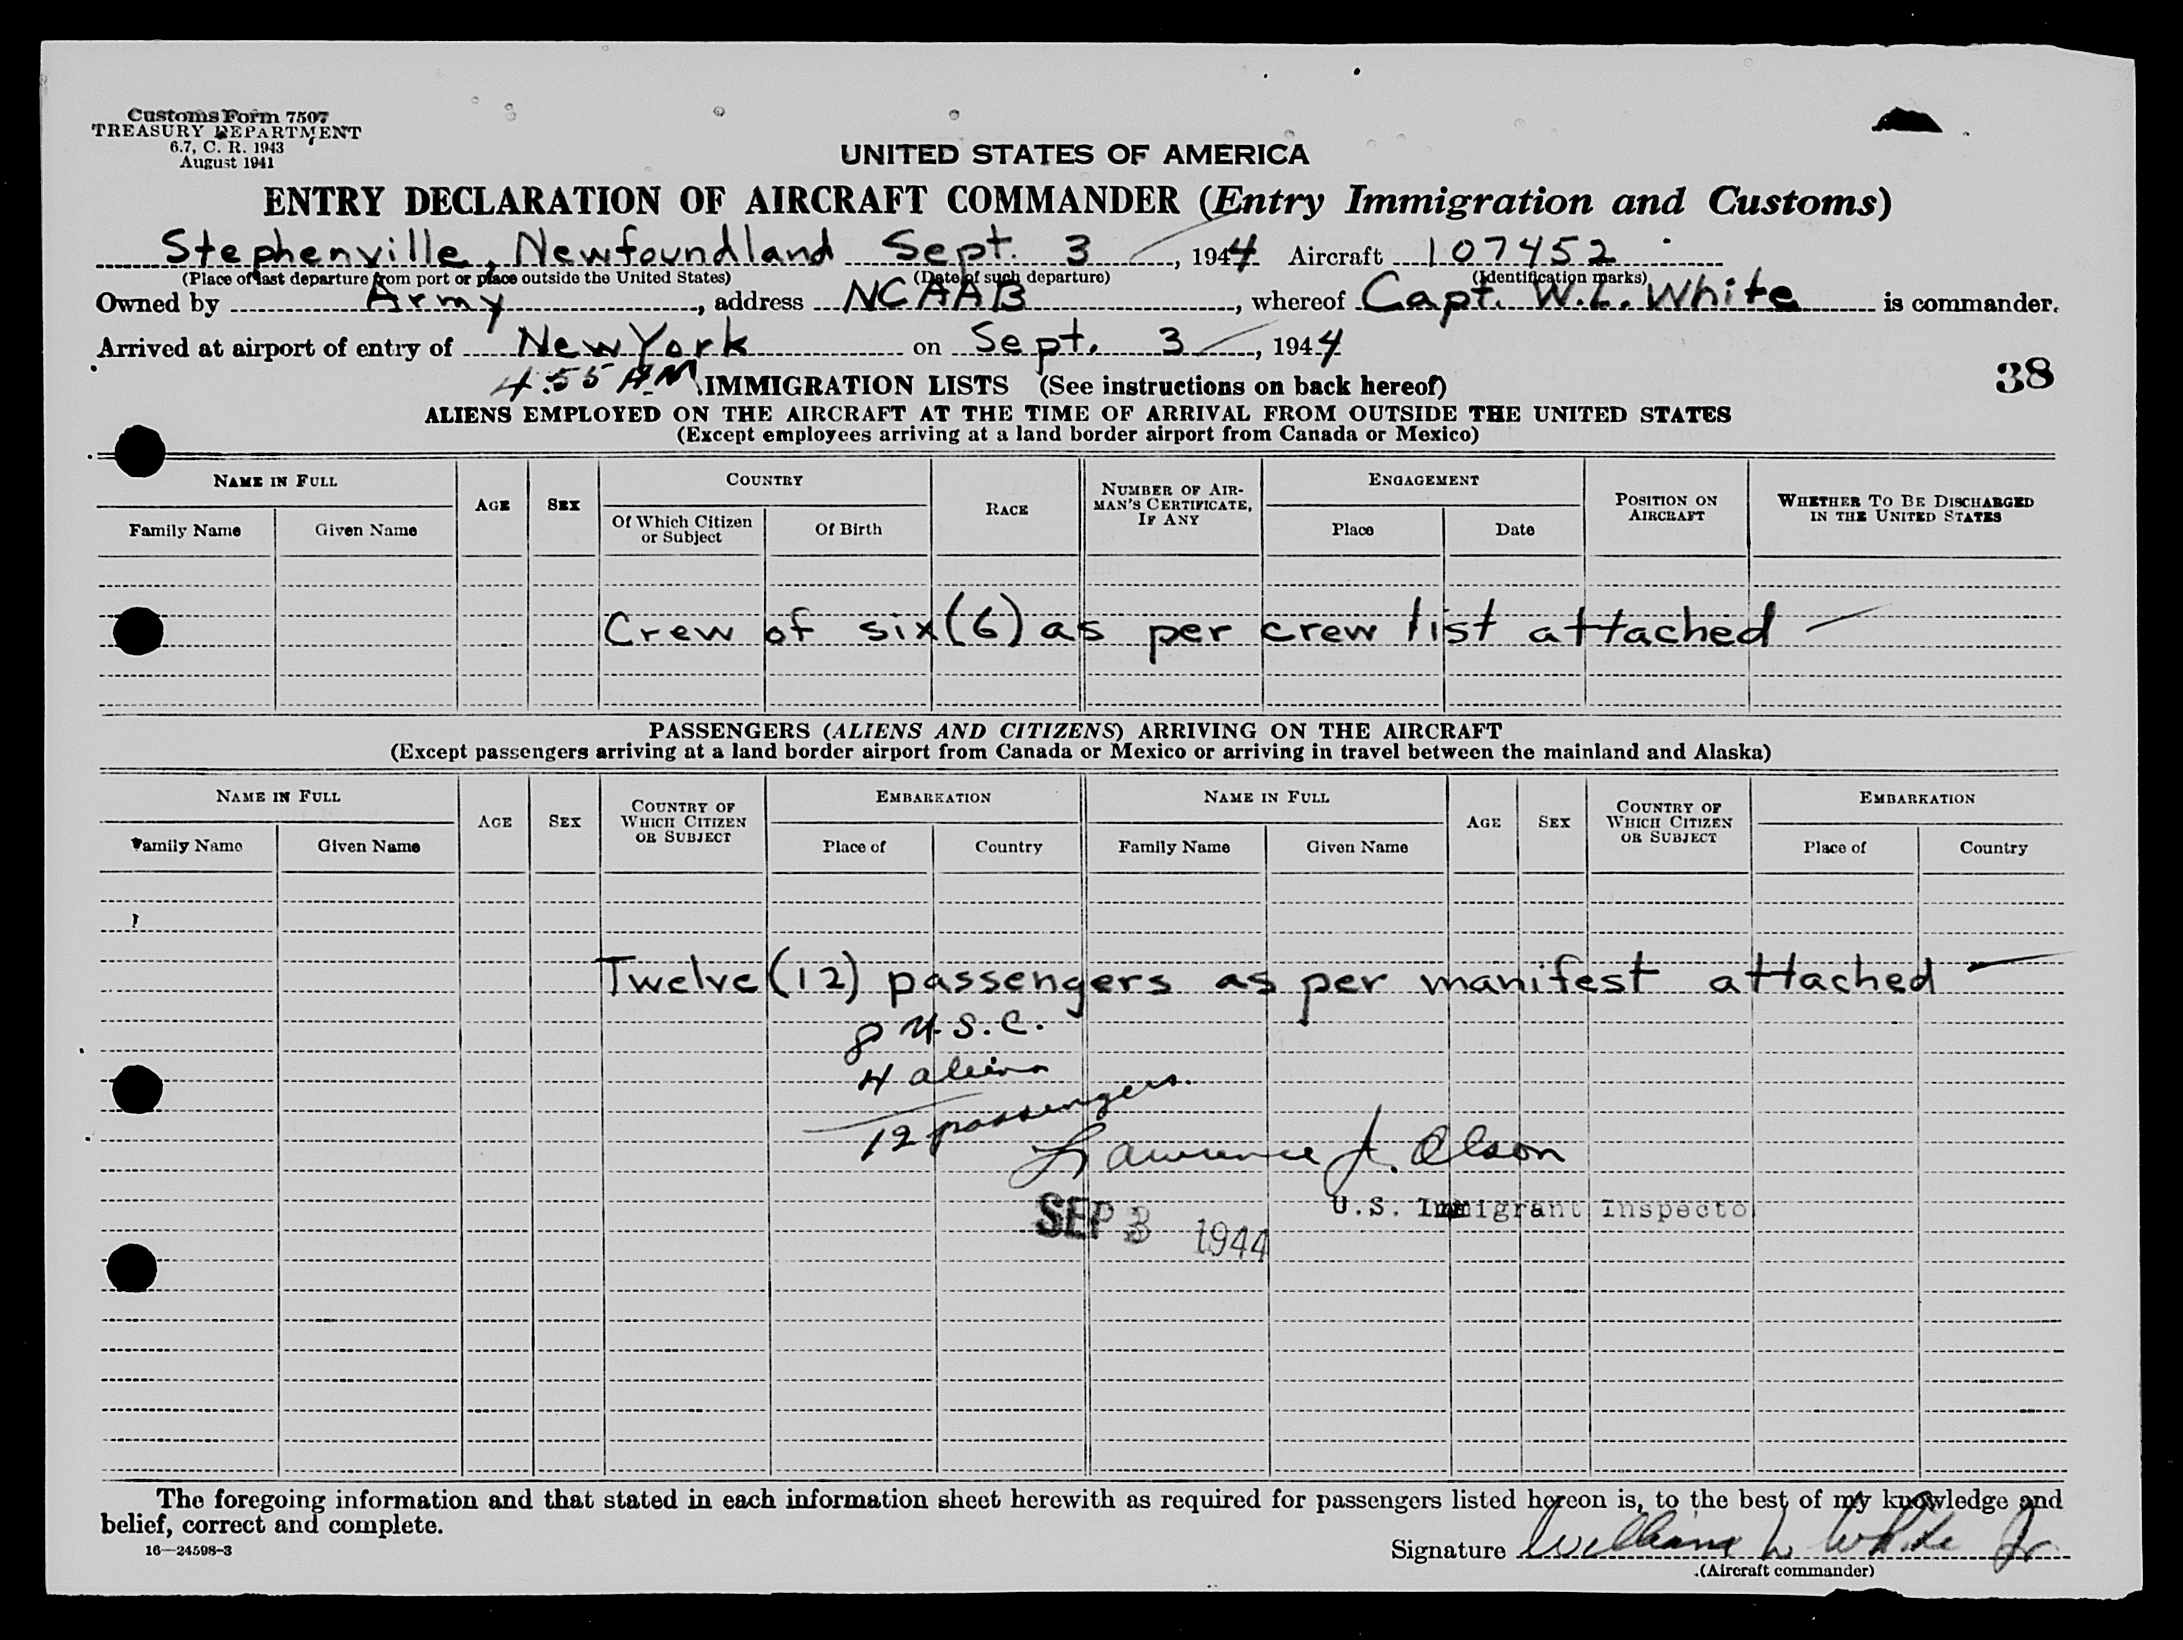 Customs Form 7507
TREASURY DEPARTMENT
6.7, C. R. 1943
August 1941
UNITED STATES OF AMERICA
ENTRY DECLARATION OF AIRCRAFT COMMANDER (Entry Immigration and Customs)
Stephenville, Newfoundland Sept. 3, 1944 Aircraft 107452
(Place of last departure from port or place outside the United States) (Date of such departure) (Identification marks)
Owned by Army, address NCAAB, whereof Capt. W. L. White is commander.
Arrived at airport of entry of New York on Sept. 3, 1944
4:55 AM IMMIGRATION LISTS (See instructions on back hereof) 38
ALIENS EMPLOYED ON THE AIRCRAFT AT THE TIME OF ARRIVAL FROM OUTSIDE THE UNITED STATES
(Except employees arriving at a land border airport from Canada or Mexico)
NAME IN FULL AGE SEX COUNTRY RACE NUMBER OF AIRMAN'S CERTIFICATE, IF ANY ENGAGEMENT POSITION ON AIRCRAFT WHETHER TO BE DISCHARGED IN THE UNITED STATES
Family Name Given Name Of Which Citizen or Subject Of Birth Place Date
Crew of six (6) as per crew list attached
PASSENGERS (ALIENS AND CITIZENS) ARRIVING ON THE AIRCRAFT
(Except passengers arriving at a land border airport from Canada or Mexico or arriving in travel between the mainland and Alaska)
NAME IN FULL AGE SEX COUNTRY OF WHICH CITIZEN OR SUBJECT EMBARKATION NAME IN FULL AGE SEX COUNTRY OF WHICH CITIZEN OR SUBJECT EMBARKATION
Family Name Given Name Place of Country Family Name Given Name Place of Country
Twelve (12) passengers as per manifest attached
8 U.S.C.
4 aliens
12 passengers.
Lawrence J. Olson
U.S. Immigrant Inspecto
SEP 3 1944
The foregoing information and that stated in each information sheet herewith as required for passengers listed hereon is, to the best of my knowledge and
belief, correct and complete.
16—24598-3
Signature William L White Jr
(Aircraft commander)